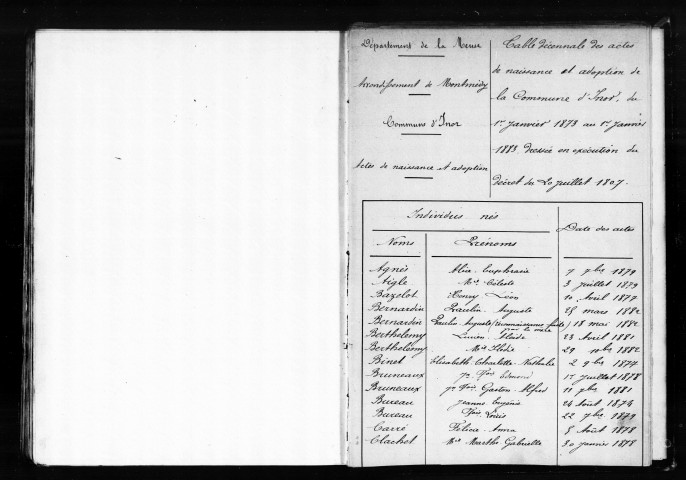 Département de la Meuse
Arrondissement de Montmédy
Commune d'Inor
Actes de naissance et adoption
Table décennale des actes
de naissance et adoption de
la Commune d'Inor, du
1er Janvier 1873 au 1er Janvier
1883 dressée en exécution du
décret du 20 juillet 1807.
Individus nés
Date des actes
Noms Prénoms
Agnès Alice Euphrasie 7 9bre 1879
Aigle Mie Céleste 3 juillet 1879
Bazelot Henry Léon 10 Avril 1877
Bernardin Paulin Auguste 25 mars 1882
Bernardin Paulin Auguste (reconnaissance faite par la mère) 18 mai 1882
Berthelemy Lucien 23 Avril 1881
Berthelemy Mie Elodie 29 9bre 1882
Binet Elisabeth Charlotte Nathalie 2 9bre 1877
Bruneaux Edmond 17 Juillet 1878
Bruneaux Gaston Alfred 11 1881
Bureau Jeanne Eugénie 24 Août 1874
Bureau Louis 22 7bre 1879
Carré Félicie Anna 5 Août 1878
Clachet Mie Marthe Gabrielle 30 janvier 1878